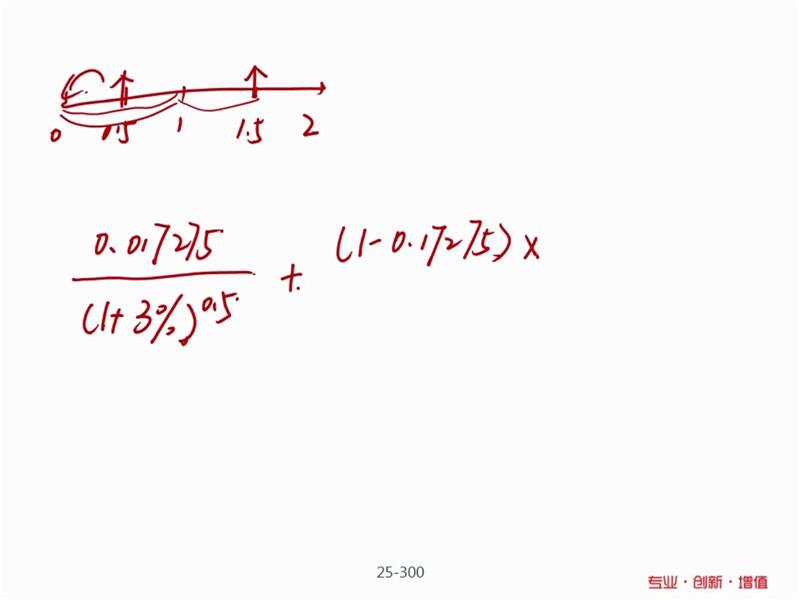 0 0.5 1 1.5 2
0.017275
(1+3%)^0.5
+
(1-0.17275)×
25-300
专业·创新·增值